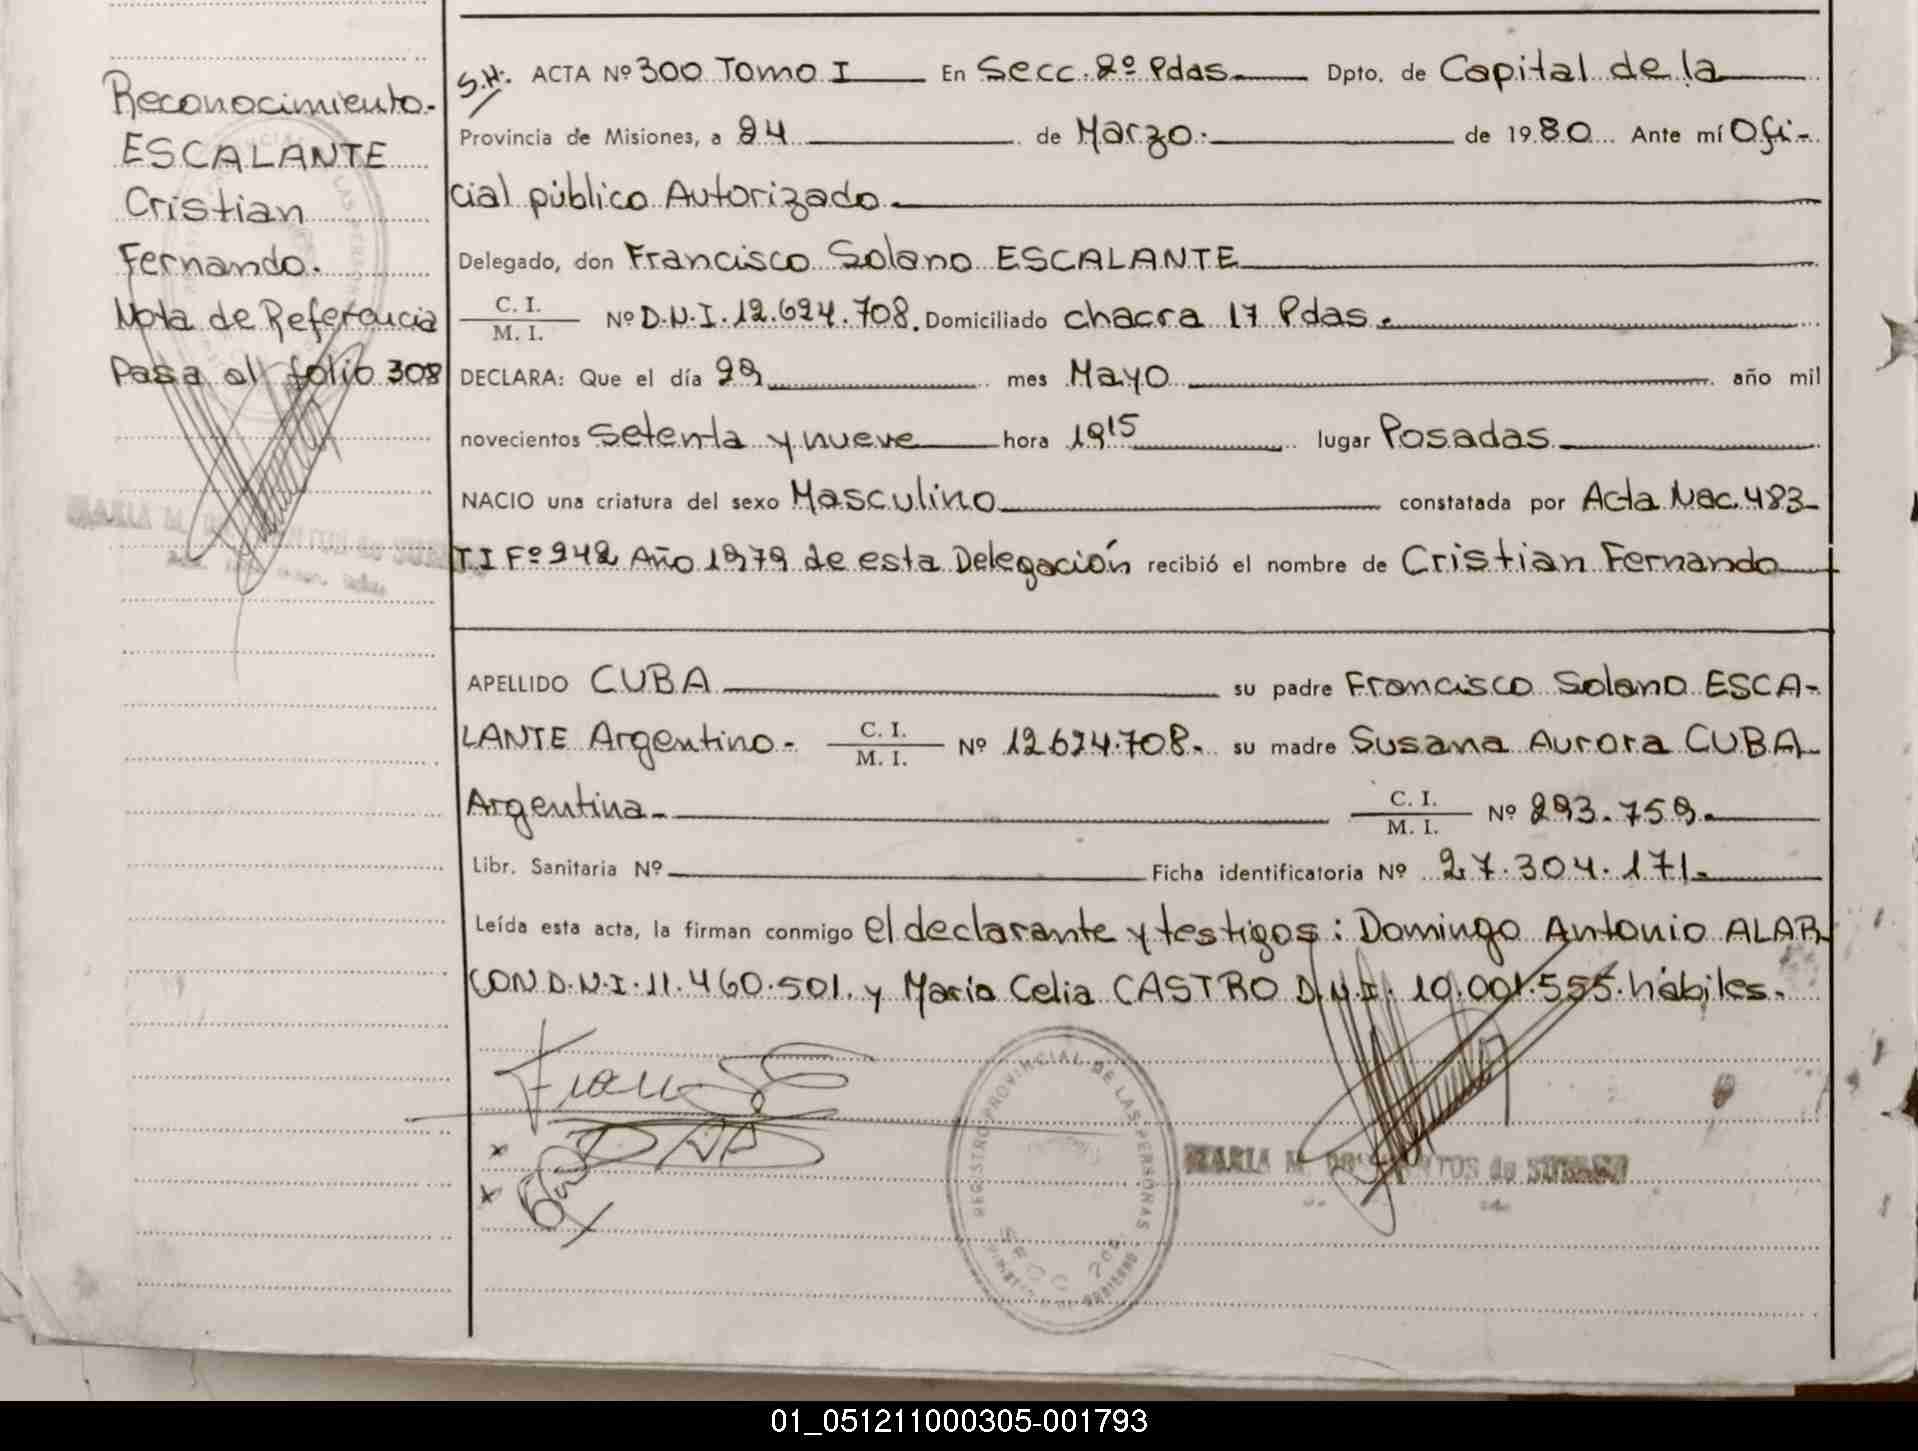 Reconocimiento.
ESCALANTE
Cristian
Fernando.
Nota de Referencia
Pasa al folio 308
S.H. ACTA Nº 300 Tomo I En Secc. 2º Pdas. Dpto. de Capital de la
Provincia de Misiones, a 24 de Marzo. de 1980 Ante mí Ofi-
cial público Autorizado.
Delegado, don Francisco Solano ESCALANTE
C. I.
M. I.
Nº D.N.I. 12.624.708. Domiciliado chacra 17 Pdas.
DECLARA: Que el día 29 mes Mayo año mil
novecientos setenta y nueve hora 19 15 lugar Posadas
NACIO una criatura del sexo Masculino constatada por Acta Nac. 483-
T.I Fº 242 Año 1979 de esta Delegación recibió el nombre de Cristian Fernando
APELLIDO CUBA su padre Francisco Solano ESCA-
LANTE Argentino- C. I. M. I. Nº 12.624.708. su madre Susana Aurora CUBA
Argentina- C. I. M. I. Nº 293.759.
Libr. Sanitaria Nº Ficha identificatoria Nº 27.304.171.
Leída esta acta, la firman conmigo el declarante y testigos: Domingo Antonio ALAR
CON D.N.I. 11.460.501. y Maria Celia CASTRO D.N.I. 10.001.555. hábiles.
REGISTRO PROVINCIAL DE LAS PERSONAS
MARIA M. DOS de
01_051211000305-001793